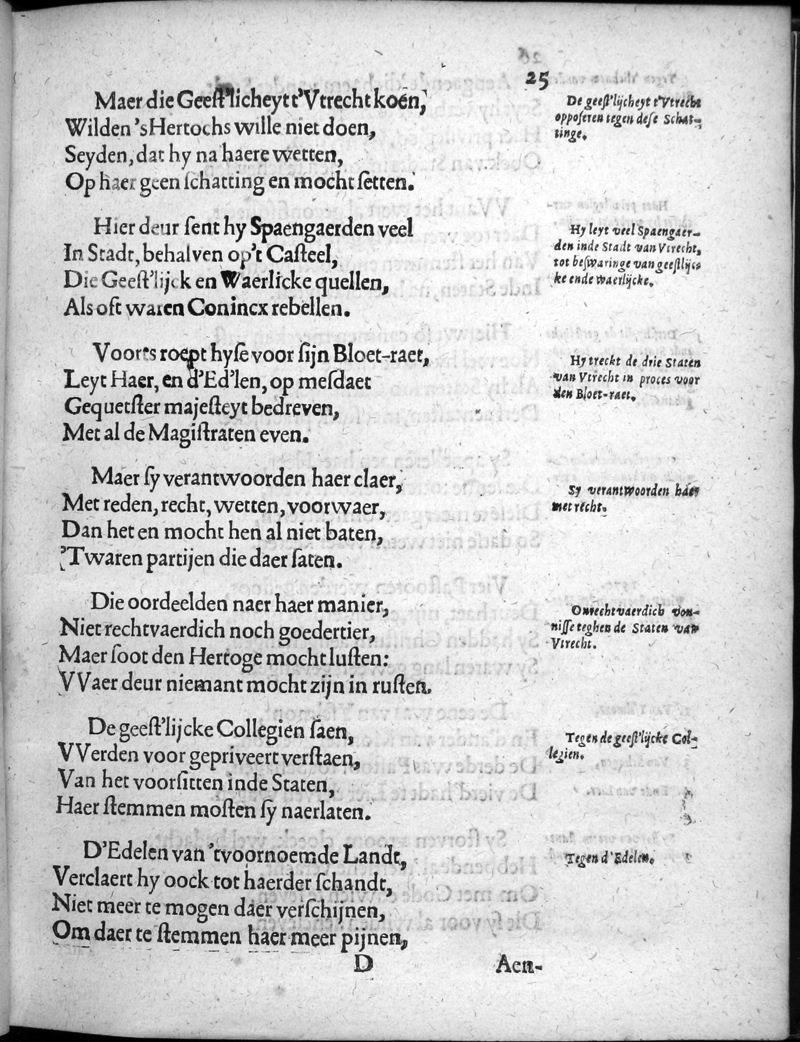 25
Maer die Geeſt'licheyt t'Vtrecht koen,
Wilden 'sHertochs wille niet doen,
Seyden, dat hy na haere wetten,
Op haer geen ſchatting en mocht ſetten.
De geeſt'lijcheyt t'Vtrecht
oppoſeren tegen deſe Schat-
tinge.
Hier deur ſent hy Spaengaerden veel
In Stadt, behalven op't Caſteel,
Die Geeſt'lijck en Waerlicke quellen,
Als oft waren Conincx rebellen.
Hy leyt veel Spaengaer-
den inde Stadt van Vtrecht,
tot beſwaringe van geeſtlijc-
ke ende waerlijcke.
Voorts roept hyſe voor ſijn Bloet-raet,
Leyt Haer, en d'Ed'len, op meſdaet
Gequetſter majeſteyt bedreven,
Met al de Magiſtraten even.
Hy treckt de drie Staten
van Vtrecht in proces voor
den Bloet-raet.
Maer ſy verantwoorden haer claer,
Met reden, recht, wetten, voorwaer,
Dan het en mocht hen al niet baten,
'Twaren partijen die daer ſaten.
Sy verantwoorden haer
met recht.
Die oordeelden naer haer manier,
Niet rechtvaerdich noch goedertier,
Maer ſoot den Hertoge mocht luſten:
VVaer deur niemant mocht zijn in ruſten.
Onrechtvaerdich von-
niſſe teghen de Staten van
Vtrecht.
De geeſt'lijcke Collegien ſaen,
VVerden voor gepriveert verſtaen,
Van het voorſitten inde Staten,
Haer ſtemmen moſten ſy naerlaten.
Tegen de geeſt'lijcke Col-
legien.
D'Edelen van 'tvoornoemde Landt,
Verclaert hy oock tot haerder ſchandt,
Niet meer te mogen daer verſchijnen,
Om daer te ſtemmen haer meer pijnen,
Tegen d'Edelen.
D
Aen-